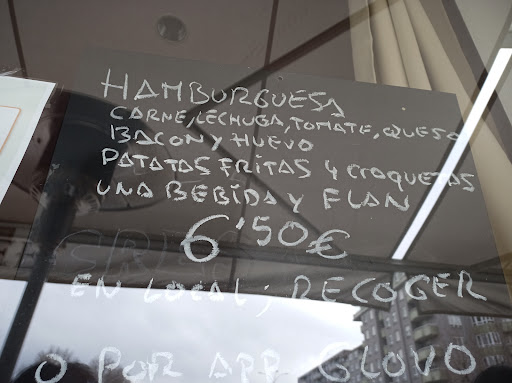 HAMBURGUESA
CARNE, LECHUGA, TOMATE, QUESO
BACON Y HUEVO
PATATAS FRITAS 4 CROQUETAS
UNA BEBIDA Y FLAN
6'50€
EN LOCAL; RECOGER
O POR APP GLOVO